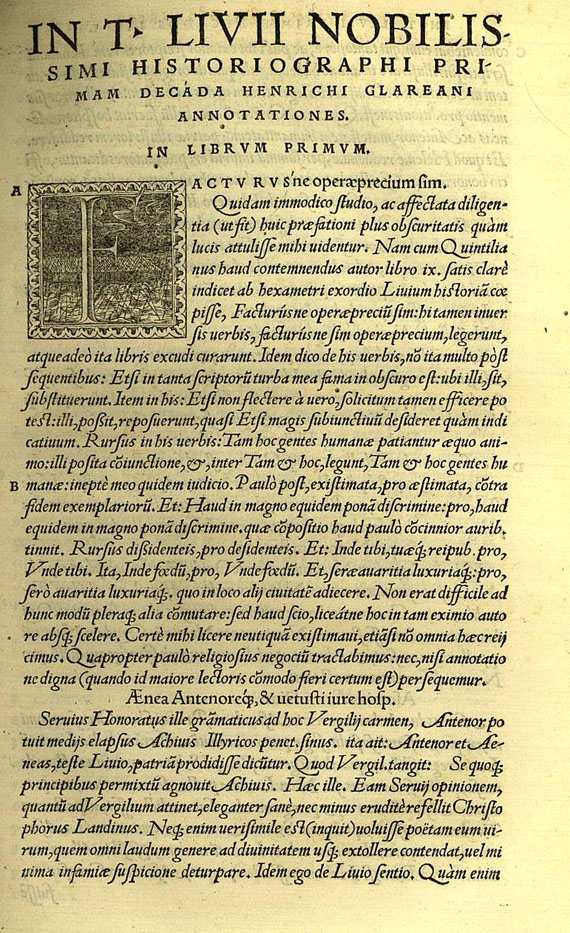 IN T. LIVII NOBILIS-
SIMI HISTORIOGRAPHI PRI-
MAM DECADA HENRICHI GLAREANI
ANNOTATIONES.
IN LIBRVM PRIMVM.
A FACTVRVS'ne operæprecium sim.
Quidam immodico studio, ac affectata diligen-
tia (ut fit) huic præfationi plus obscuritatis quàm
lucis attulisse mihi uidentur. Nam cum Quintilia
nus haud contemnendus autor libro ix. satis clarè
indicet ab hexametri exordio Liuium historiā cœ
pisse, Facturúsne operæpreciū sim: hi tamen inuer
sis uerbis, facturúsne sim operæprecium, legerunt,
atque adeò ita libris excudi curarunt. Idem dico de his uerbis, nō ita multo pòst
sequentibus: Etsi in tanta scriptorū turba mea fama in obscuro est: ubi illi, sit,
substituerunt. Item in his: Etsi non flectere à uero, solicitum tamen efficere po
test: illi, possit, reposuerunt, quasi Etsi magis subiunctiuū desideret quàm indi
catiuum. Rursus in his uerbis: Tam hoc gentes humanæ patiantur æquo ani-
mo: illi posita cōiunctione, &, inter Tam & hoc, legunt, Tam & hoc gentes hu
B manæ: ineptè meo quidem iudicio. Paulò post, existimata, pro æstimata, cōtra
fidem exemplariorū. Et: Haud in magno equidem ponā discrimine: pro, haud
equidem in magno ponā discrimine. quæ cōpositio haud paulò cōcinnior aurib.
tinnit. Rursus dissidenteis, pro desidenteis. Et: Inde tibi, tuæq; reipub. pro,
Vnde tibi. Ita, Inde fœdū, pro, Vnde fœdū. Et, seræ auaritia luxuriaq;: pro,
serò auaritia luxuriaq;. quo in loco alij ciuitatē adiecere. Non erat difficile ad
hunc modū pleraq; alia cōmutare: sed haud scio, liceátne hoc in tam eximio auto
re absq; scelere. Certè mihi licere neutiquā existimaui, etiāsi nō omnia hæc reij
cimus. Quapropter paulò religiosius negociū tractabimus: nec, nisi annotatio
ne digna (quando id maiore lectoris cōmodo fieri certum est) persequemur.
Ænea Antenoreq́;, & uetusti iure hosp.
Seruius Honoratus ille grāmaticus ad hoc Vergilij carmen, Antenor po
tuit medijs elapsus Achiuis Illyricos penet. sinus. ita ait: Antenor et Ae-
neas, teste Liuio, patriā prodidisse dicūtur. Quod Vergil. tangit: Se quoq;
principibus permixtū agnouit Achiuis. Hæc ille. Eam Seruij opinionem,
quantū ad Vergilium attinet, eleganter sanè, nec minus eruditè refellit Christo
phorus Landinus. Neq; enim uerisimile est (inquit) uoluisse poëtam eum ui-
rum, quem omni laudum genere ad diuinitatem usq; extollere contendat, uel mi
nima infamiæ suspicione deturpare. Idem ego de Liuio sentio. Quàm enim